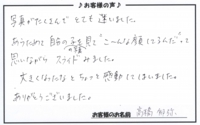 ♪お客様の声♪
写真がたくさんで とても 迷いました。
あらためて 自分の子を見て "こーんな顔してるんだ" って
の顔
思いながら スライドみました。
大きくなったなと ちょっと 感動してしまいました。
ありがとうございました。
お客様のお名前 高橋